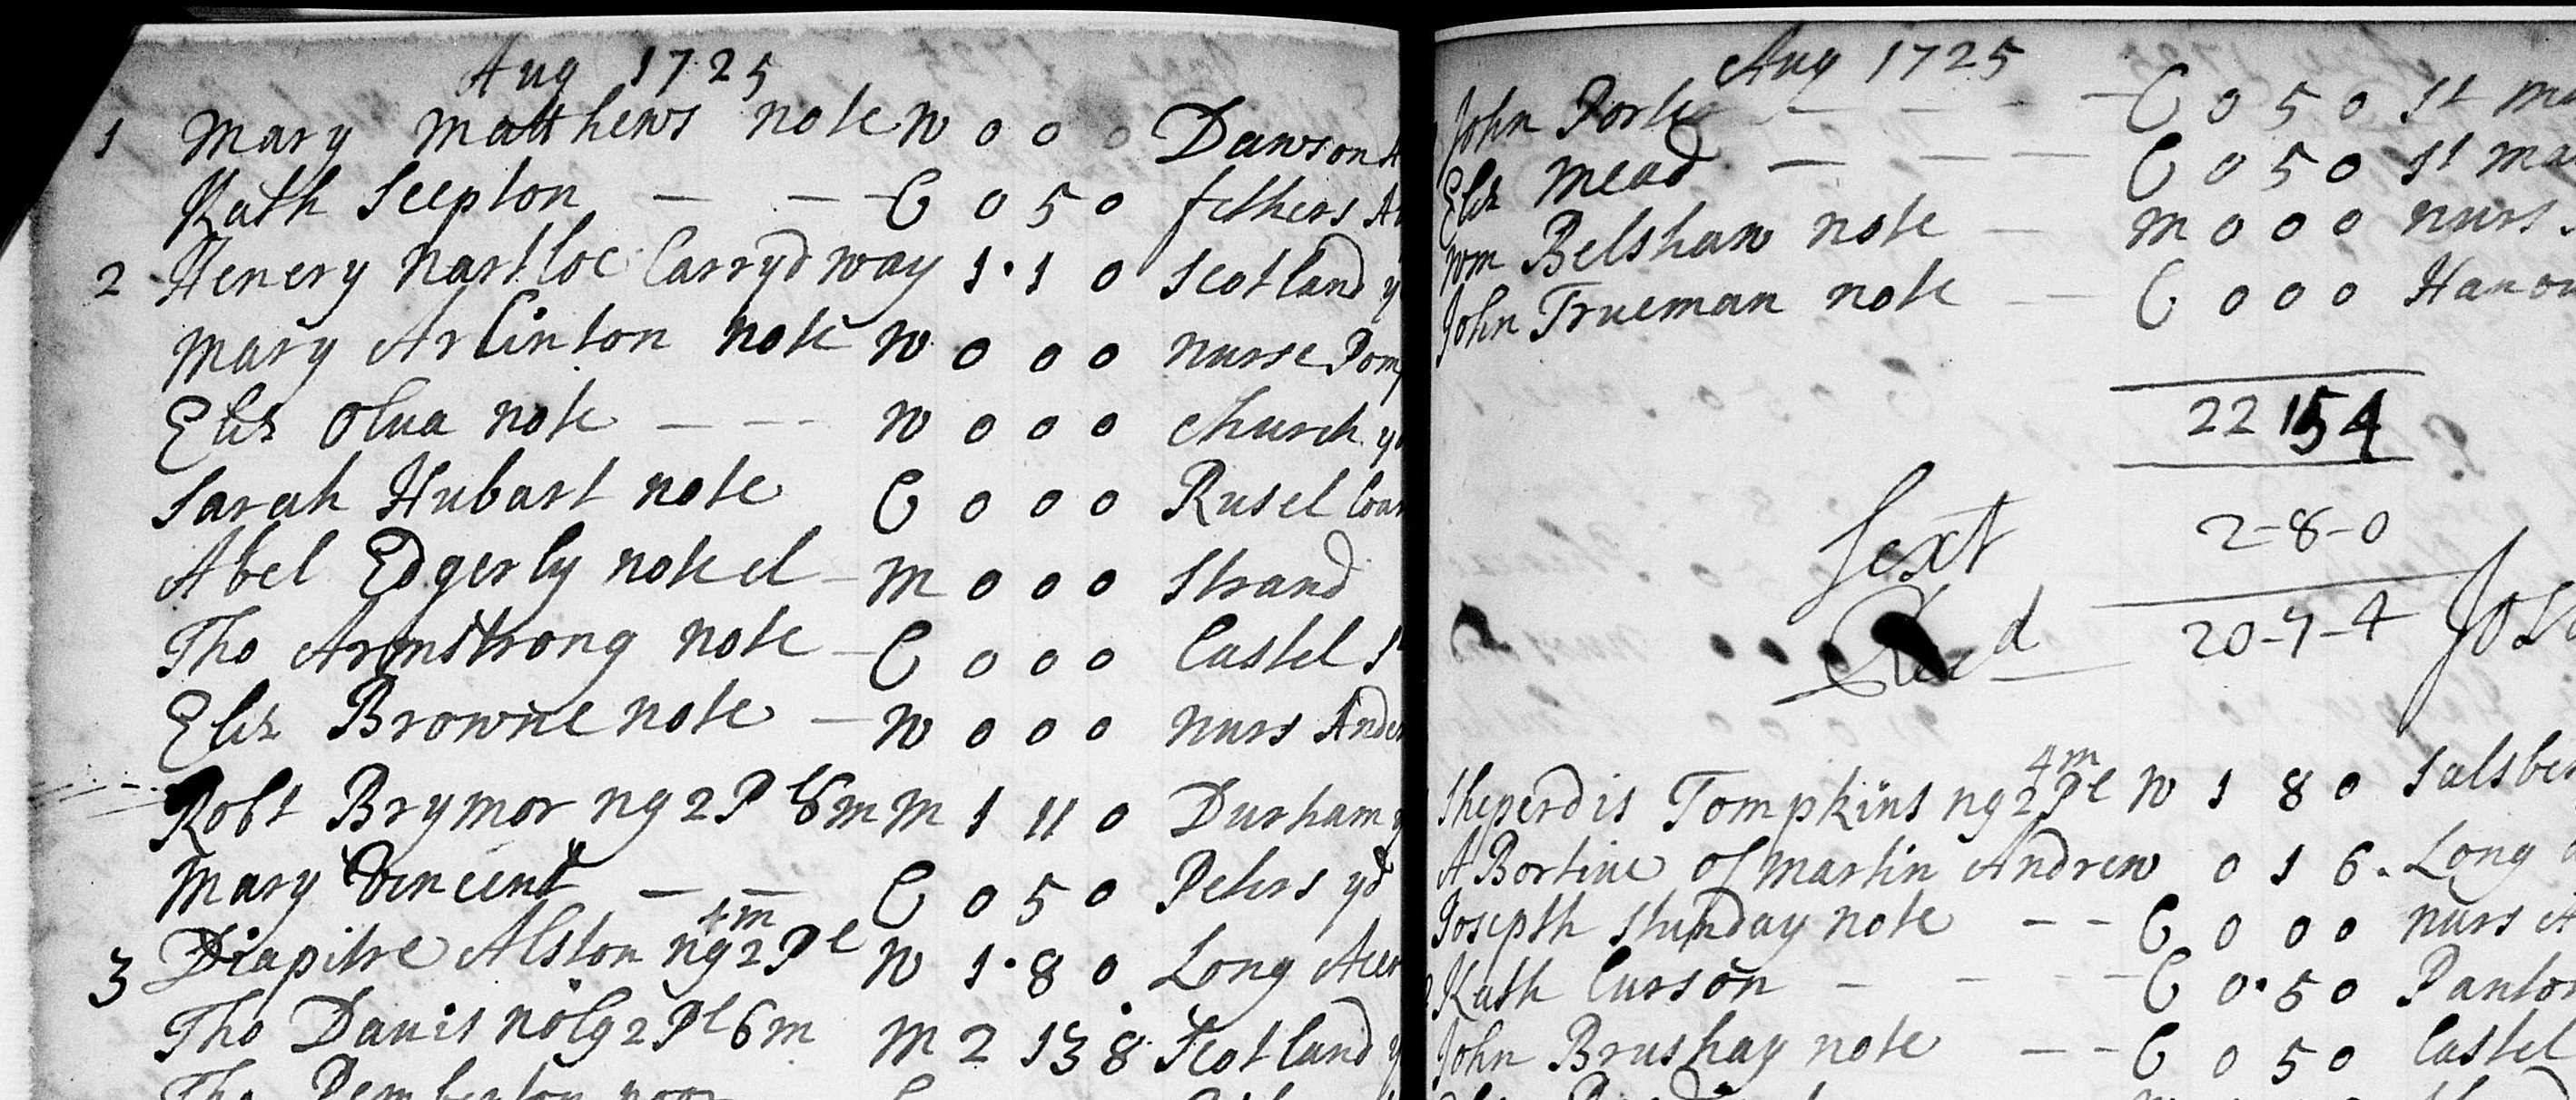 Aug 1725
1 Mary Matthews note W 0 0 0 Dawson
Kath Seepton — — — C 0 5 0 fethers
2 Henery Nartloc Carryd way 1 · 1 0 Scotland
Mary Arlinton note W 0 0 0 nurse
Eliz Olua note — — — W 0 0 0 Church
Sarah Hubart note C 0 0 0 Rusel
Abel Edgerly note el — M 0 0 0 Strand
Tho Armstrong note — C 0 0 0 Castel
Eliz Browne note — W 0 0 0 nurs
Robt Brymor ng 2 Pl 6m M 1 11 0 Durham
Mary Vincent — — C 0 5 0 Peters yd
3 Diapitre Alston ng 2 Pl 4m W 1 · 8 0 Long Acer
Tho Dauis nolg 2 Pl 6m M 2 13 8 Scotland
Tho Pemberton poor
Aug 1725
John — — — — C 0 5 0 St
Eliz Mead — — — C 0 5 0 St
Wm Belshaw note — M 0 0 0 nurs
John Trueman note — C 0 0 0
22 15 4
Sext 2-8-0
Recd 20-7-4
Sheperdis Tompkins ng 2 Pl 4m W 1 8 0
A Bortiue of Martin Andrew 0 1 6 Long
Joseph Shunday note — — C 0 0 0 nurs
Kath Curson — — — — C 0 · 5 0
John Brushay note — — C 0 5 0 Castel